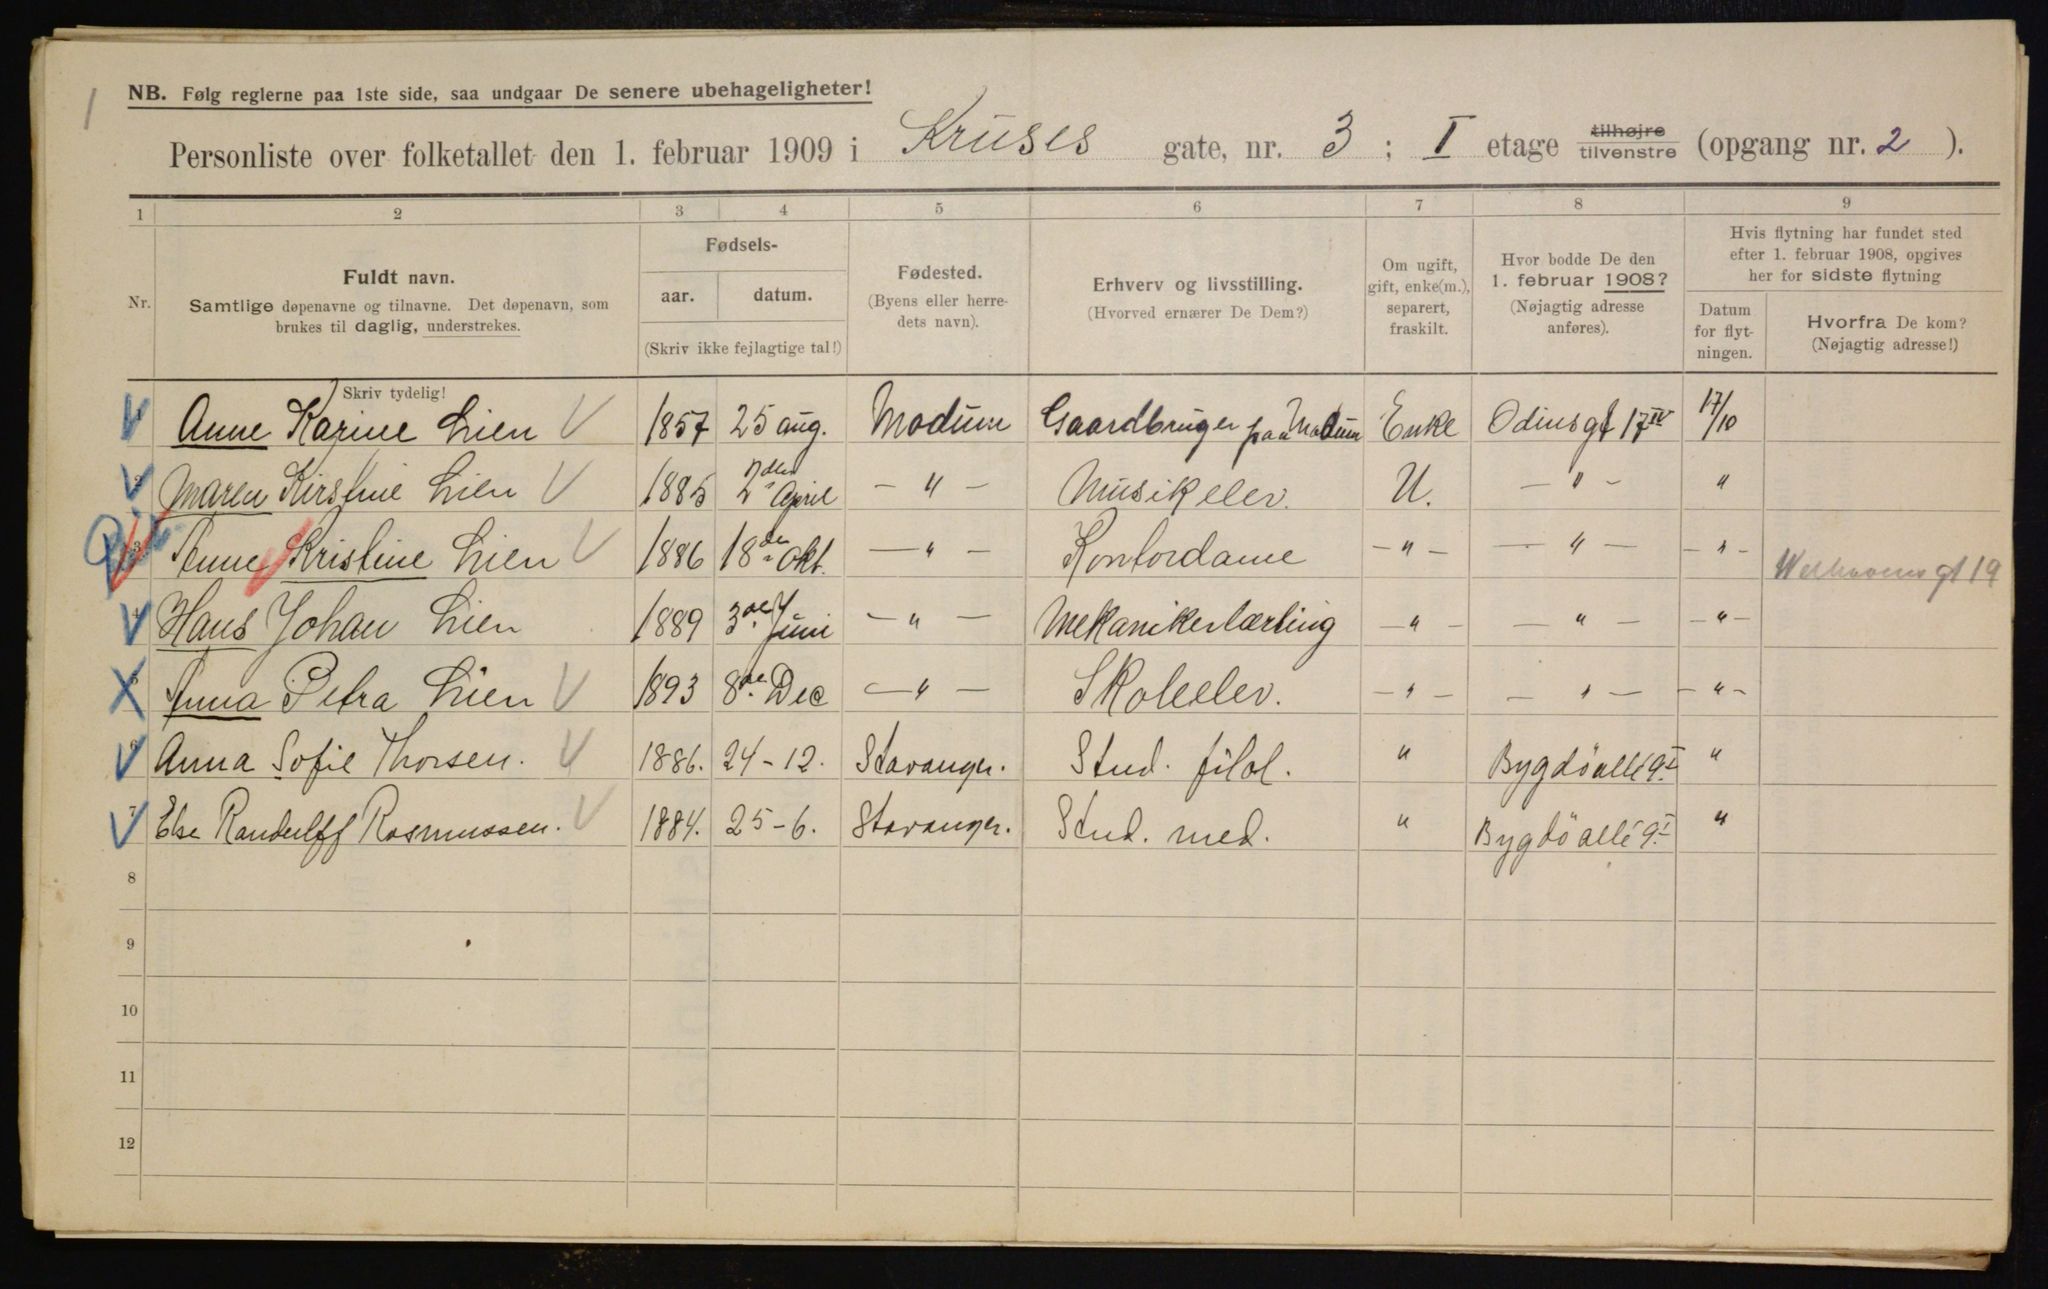 1
NB. Følg reglerne paa 1ste side, saa undgaar De senere ubehageligheter!
Personliste over folketallet den 1. februar 1909 i Kruses gate, nr. 3 ; I etage tilhøjre tilvenstre (opgang nr. 2 ).
1 2 3 4 5 6 7 8 9
Nr.
Fuldt navn.
Samtlige døpenavne og tilnavne. Det døpenavn, som
brukes til daglig, understrekes.
Fødsels-
aar. datum.
(Skriv ikke fejlagtige tal!)
Fødested.
(Byens eller herre-
dets navn).
Erhverv og livsstilling.
(Hvorved ernærer De Dem?)
Om ugift,
gift, enke(m.),
separert,
fraskilt.
Hvor bodde De den
1. februar 1908?
(Nøjagtig adresse
anføres).
Hvis flytning har fundet sted
efter 1. februar 1908, opgives
her for sidste flytning
Datum
for flyt-
ningen.
Hvorfra De kom?
(Nøjagtig adresse!)
Skriv tydelig!
1 Anne Karine Lien 1857 25 aug. Modum Gaardbruger paa Modum Enke Odinsgt 17 IV 17/10
2 Maren Kirstine Lien 1885 2den April — " — Musikelev. U. — " — "
3 Anne Kristine Lien 1886 18de Okt. — " — Kontordame — " — — " — — " — Welhavens gt 19
4 Hans Johan Lien 1889 3de Juni — " — Mekanikerlærling — " — — " — — " —
5 Anna Petra Lien 1893 8de Dec — " — Skoleelev. — " — — " — — " —
6 Anna Sofie Thorsen. 1886. 24-12. Stavanger. Stud. filol. " Bygdöallé 9 I "
7 Else Randulff Rasmussen. 1884. 25-6. Stavanger. Stud. med. " Bygdö allé 9 I "
8
9
10
11
12